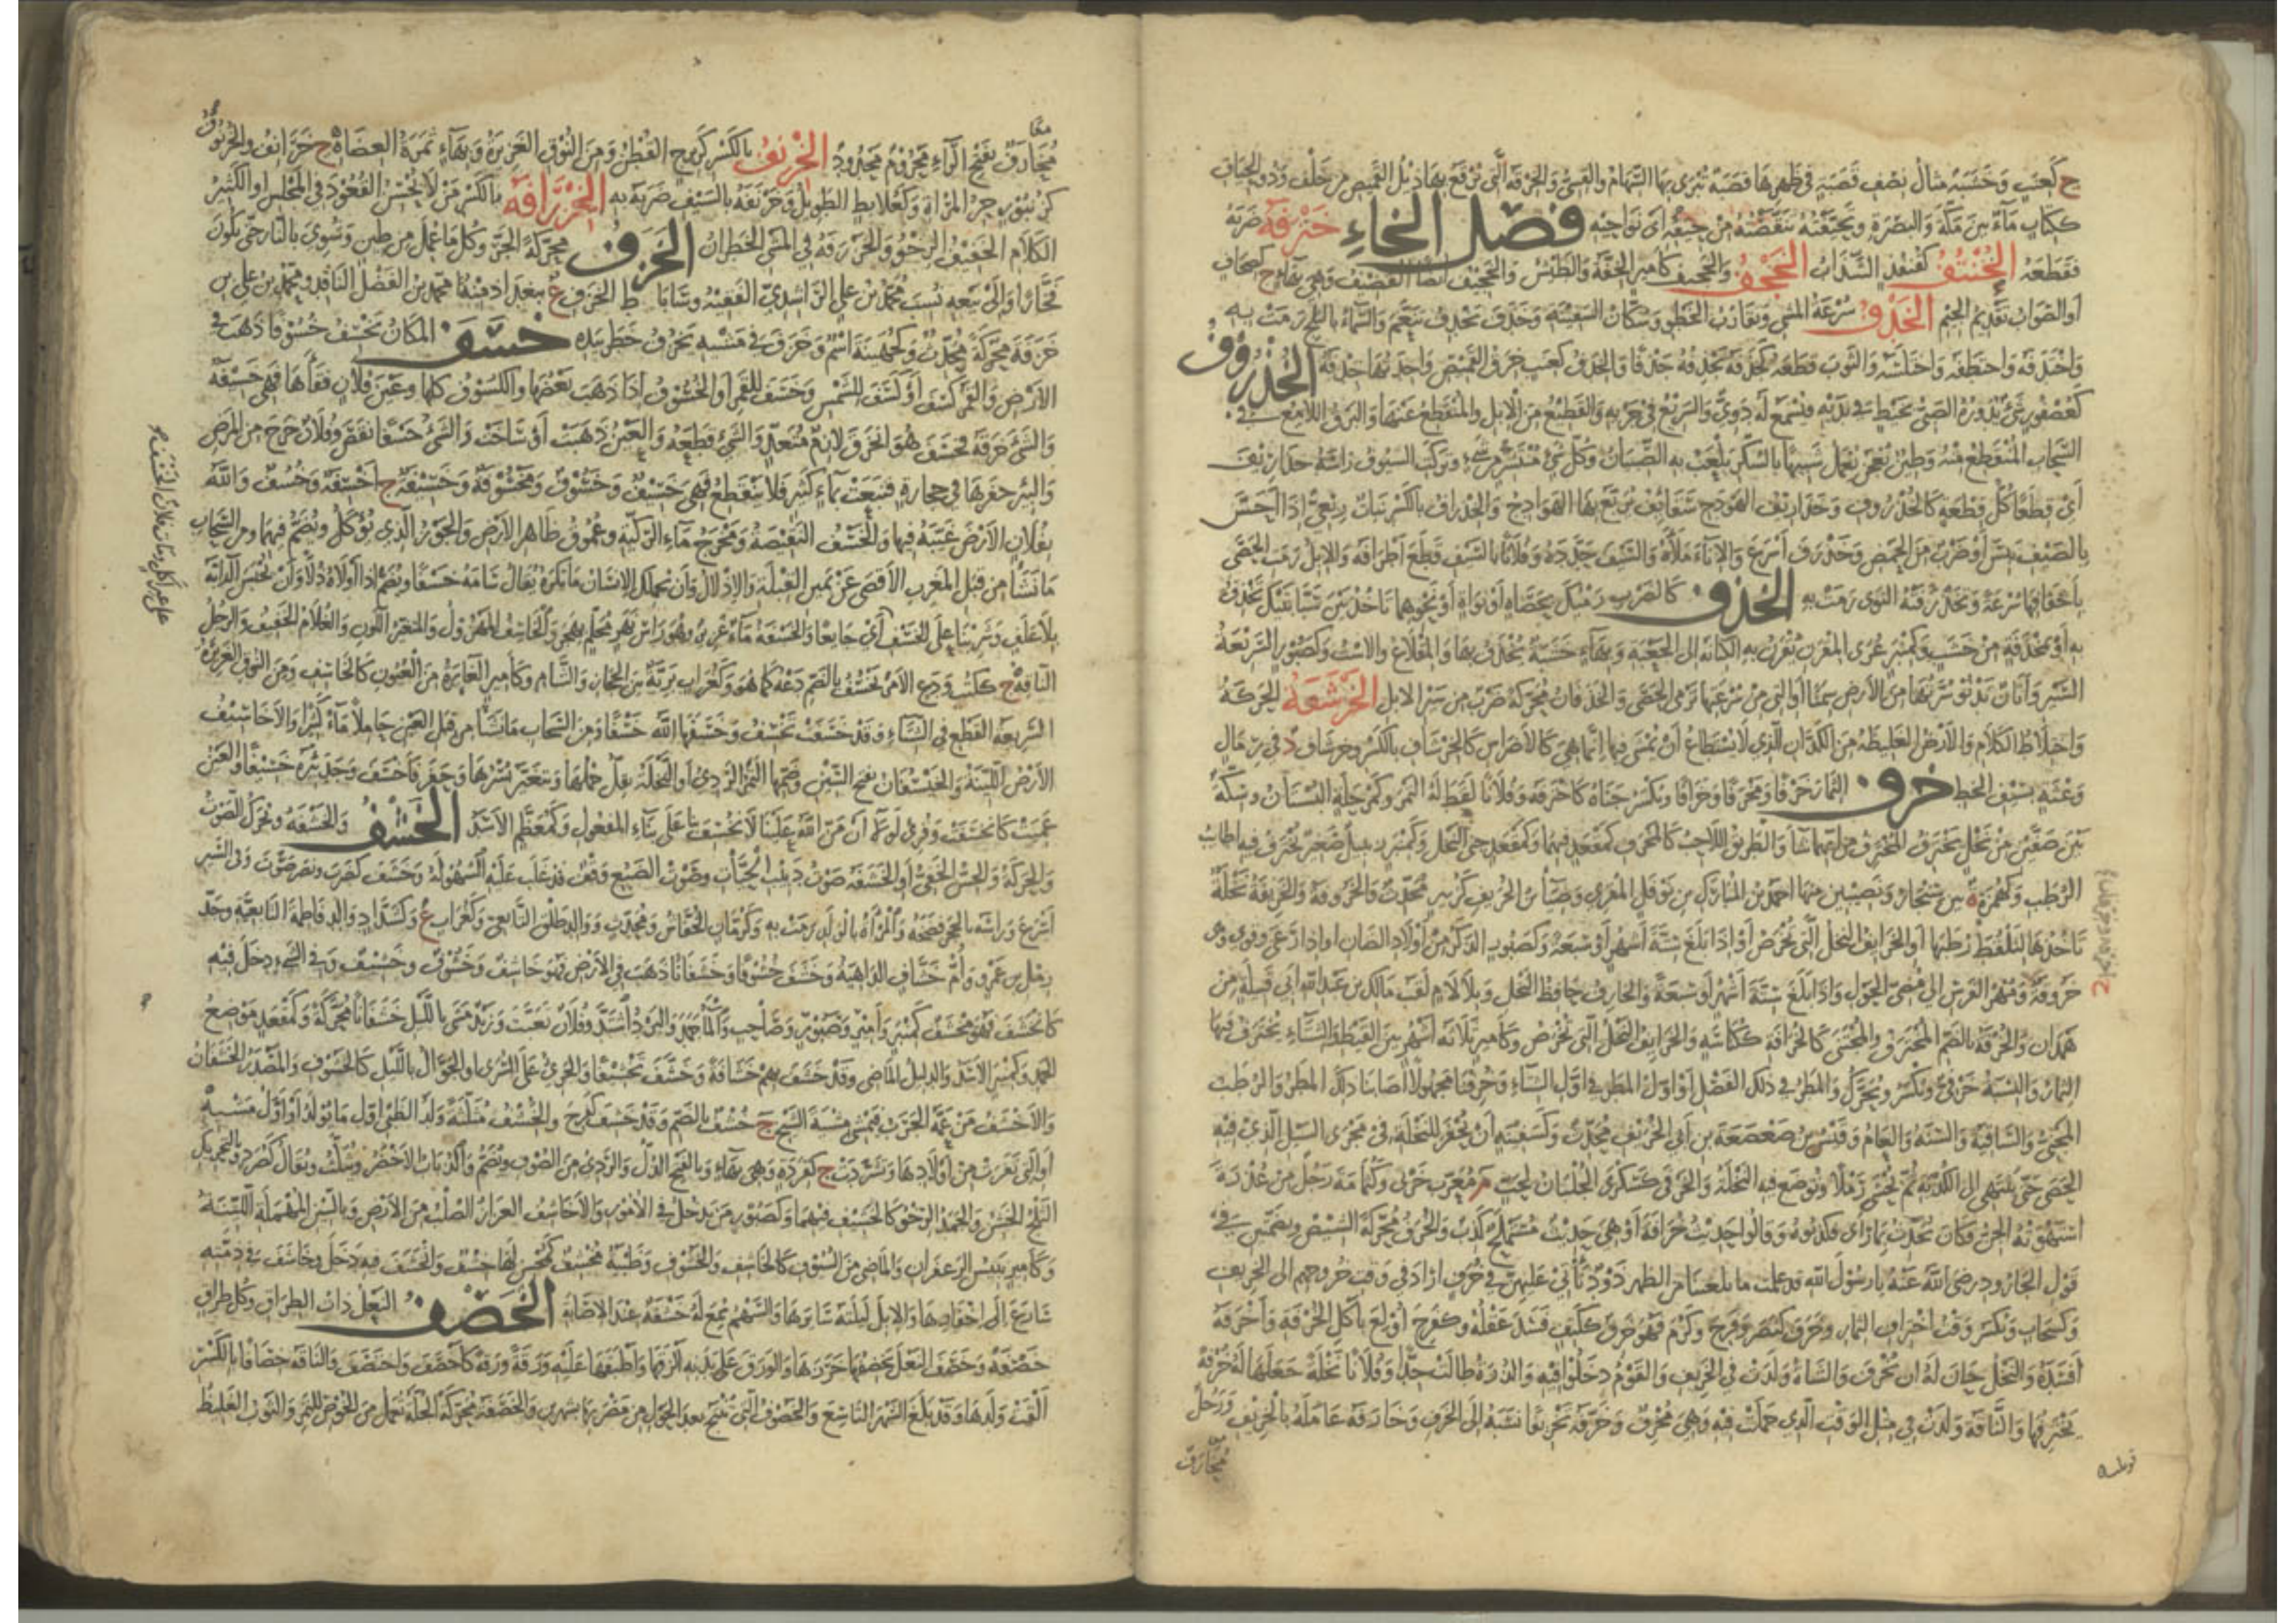 ج كعنب وخشبة مثال نصف قصبة في ظهرها قصبة ترمى بها السهام والقسي والخرقة التي ترقع بها ذيل القميص من خلف وذو الحياف
ككتاب ماء بين مكة والبصرة وتحيفته تنقصته من حيفه أي نواحيه فصل الخاء خترفه ضربه
فقطعه الخنتف كقنفذ السذاب الخجف والخجيف كأمير الخفة والطيش والخجيف أيضا القضيف وهي بهاء ج كصحاف
أو الصواب تقديم الجيم الخدف سرعة المشي وتقارب الخطو وسكان السفينة وخدف يخدف تنعم والسماء بالثلج رمت به
واختدفه واختطفه واختلسه والثوب قطعه كخدفه يخدفه خدفا والخدف كعنب خرق القميص واحدتها خدفة الخذروف
كعصفور شيء يدوره الصبي بخيط في يديه فيسمع له دوي والسريع في جريه والقطيع من الإبل والمنقطع عنها والبرق اللامع في
السحاب المنقطع منه وطين يعجن يعمل شبيها بالسكر يلعب به الصبيان وكل شيء منتشر من شيء وتركت السيوف رأسه خذاريف
أي قطعا كل قطعة كالخذروف وخذاريف الهودج سقائف يربع بها الهودج والخذراف بالكسر نبات ربعي إذا أحس
بالصيف يبس أو ضرب من الحمض وخذرف أسرع والإناء ملأه والسيف حدده وفلانا بالسيف قطع أطرافه والإبل رمت الحصى
بأخفافها سرعة وتخذرفته النوى رمت به الخذف كالضرب رميك بحصاة أو نواة أو نحوهما تأخذ بين سبابتيك تخذف
به أو بمخذفة من خشب وكمنبر عرى المقرن تقرن به الكنانة إلى الجعبة وبهاء خشبة يخذف بها والمقلاع والاست وكصبور السريعة
السير وأتان تدنو سرتها من الأرض سمنا أو التي من سرعتها ترمي الحصى والخذفان محركة ضرب من سير الإبل الخرشفة الحركة
واختلاط الكلام والأرض الغليظة من الكذان الذي لا يستطاع أن يمشى فيها إنما هي كالأضراس كالخرشاف بالكسر وخرشاف د في رمال
وعثة بسيف الخط خرف الثمار خرفا ومخرفا وخرافا ويكسر جناه كاخترفه وفلانا لقط له التمر وكمرحلة البستان وسكة
بين صفين من نخل يخترف المخترف من أيهما شاء والطريق اللاحب كالمخرف كمقعد فيهما وكمقعد جنى النخل وكمنبر زبيل صغير يخترف فيه أطايب
الرطب وكهمزة ة بين سنجار ونصيبين منها أحمد بن المبارك بن نوفل المقرئ وضياء بن الخريف كزبير محدث والخروفة والخريفة نخلة
تأخذها لتلقط رطبها أو الخرائف النخل التي تخرص أو إذا بلغ ستة أشهر أو سبعة وكصبور الذكر من أولاد الضأن أو إذا رعى وقوي وهي
خروفة ومهر الفرس إلى مضي الحول وإذا بلغ ستة أشهر أو سبعة والخارف حافظ النخل وبلا لام لقب مالك بن عبد الله أبي قبيلة من
همدان والخرفة بالضم المخترف والمجتنى كالخرافة ككناسة والخرائف النخل التي تخرص وكأمير ثلاثة أشهر بين القيظ والشتاء يخترف فيها
الثمار والنسبة خرفي ويكسر ويحرك والمطر في ذلك الفصل أو أول المطر في أول الشتاء وخرفنا مجهولا أصابنا ذلك المطر والرطب
المجني والساقية والسنة والعام وقيس بن صعصعة بن أبي الخريف محدث وكسفينة أن يحفر للنخلة في مجرى السيل الذي فيه
الحصى حتى ينتهي إلى الكدية ثم يحشى رملا وتوضع فيه النخلة والخرفى كسكرى الجلبان لحب م معرب خربى وكثمامة رجل من عذرة
استهوته الجن فكان يحدث بما رأى فكذبوه وقالوا حديث خرافة أو هي حديث مستملح كذب والخرف محركة الشيص وبضمتين في
قول الجارود رضي الله عنه يا رسول الله قد علمت ما يكفينا من الظهر ذود نأتي عليهن في خرف أراد في وقت خروجهم إلى الخريف
وكسحاب ويكسر وقت اختراف الثمار وخرف كنصر وفرح وكرم فهو خرف ككتف فسد عقله وكفرح أولع بأكل الخرفة وأخرفه
أفسده والنخل حان له أن يخرف والشاة ولدت في الخريف والقوم دخلوا فيه والذرة طالت جدا وفلانا نخلة جعلها له خرفة
يخترفها والناقة ولدت في مثل الوقت الذي حملت فيه وهي مخرف وخرفه تخريفا نسبه إلى الخرف وخارفه عامله بالخريف ورجل
مخارف
مخارف بفتح الراء محروم محدود الخرنف بالكسر كزبرج القطن ومن النوق الغزيرة وبهاء ثمرة العضاه ج خرانف والخرنوف
كزنبور حر المرأة وكعلابط الطويل وخرنفه بالسيف ضربه به الخزرافة بالكسر من لا يحسن القعود في المجلس أو الكثير
الكلام الخفيف الرخو والخزرفة في المشي الخطران الخزف محركة الجر وكل ما عمل من طين وشوي بالنار حتى يكون
فخارا وإلى بيعه نسب محمد بن علي الراشدي الفقيه وساباط الخزف ع ببغداد منه محمد بن الفضل الناقد ومحمد بن علي بن
خزفة محركة محدث وكجهينة اسم وخزف في مشيه يخزف خطر بيده خسف المكان يخسف خسوفا ذهب في
الأرض والقمر كسف أو كسف للشمس وخسف للقمر أو الخسوف إذا ذهب بعضهما والكسوف كلهما وعين فلان فقأها فهي خسيفة
والشيء خرقه فخسف هو انخرق لازم متعد والشيء قطعه والعين ذهبت أو ساخت والشيء خسفا نقص وفلان خرج من المرض
والبئر حفرها في حجارة فنبعت بماء كثير فلا ينقطع فهي خسيف وخسوف ومخسوفة وخسيفة ج أخسفة وخسف والله
بفلان الأرض غيبه فيها والخسف النقيصة ومخرج ماء الركية وعموق ظاهر الأرض والجوز الذي يؤكل ويضم فيهما ومن السحاب
ما نشأ من قبل المغرب الأقصى عن يمين القبلة والإذلال وأن يحملك الإنسان ما تكره يقال سامه خسفا ويضم إذا أولاه ذلا وأن تحبس الدابة
بلا علف وشربنا على الخسف أي جائعا والخسفة ماء غزير وهو رأس نهر محلم بهجر والخاسف المهزول والمتغير اللون والغلام الخفيف والرجل
الناقه ج ككتب ودع الأمر يخسف بالضم دعه كما هو وكغراب برية بين الحجاز والشام وكأمير الغائرة من العيون كالخاسف ومن النوق الغزيرة
السريعة القطع في الشتاء وقد خسفت تخسف وخسفها الله خسفا ومن السحاب ما نشأ من قبل العين حاملا ماء كثيرا والأخاسيف
الأرض اللينة والخيسفان بفتح السين وضمها التمر الرديء أو النخلة يقل حملها ويتغير بسرها وحفر فأخسف وجد بئره خسيفا والعين
عميت كانخسفت وقرئ لولا أن من الله علينا لانخسف بنا على بناء المفعول وكمعظم الأسد الخشف والخشفة ويحرك الصوت
والحركة والحس الخفي أو الخشفة صوت دبيب الحيات وصوت الضبع وقف قد غلب عليه السهولة وخشف كضرب ونصر صوت وفي السير
أسرع ورأسه بالحجر فضخه والمرأة بالولد رمت به وكرمان الخفاش ومحدث ووالد طلق التابعي وكغراب ع وكشداد والد فاطمة التابعية وجد
زمل بن عمرو وأم خشاف الداهية وخشف خشوفا وخشفانا ذهب في الأرض فهو خاشف وخشوف وخشيف وفي الشيء دخل فيه
كانخشف فهو مخشف كمنبر وأمير وصبور وصاحب والماء جمد والبرد اشتد وفلان تغيب وزيد مشى بالليل خشفانا محركة وكمقعد موضع
الجمد وكمنبر الأسد والدليل الماضي وقد خشف بهم خشافة وخشف تخشيفا والجريء على السرى أو الجوال بالليل كالخشوف والمصدر الخشفان
والأخشف من عمه الجرب فيمشي مشية الشيخ ج خشف بالضم وقد خشف كفرح والخشف مثلثة ولد الظبي أول ما يولد أو أول مشيه
أو التي نفرت من أولادها وتشردت ج كقردة وهي بهاء وبالفتح الذل والرديء من الصوف ويضم والذباب الأخضر ويثلث ويقال كصرد وبالتحريك
الثلج الخشن والجمد الرخو كالخشيف فيهما وكصبور من يدخل في الأمور والأخاشف العزاز الصلب من الأرض وبالسين المهملة اللينة
وكأمير يبيس الزعفران والماضي من السيوف كالخاشف والخشوف وظبية مخشف كمحسن لها خشف وانخشف فيه دخل وخاشف في ذمته
سارع إلى إخفارها والإبل ليلته سايرها والسهم يسمع له خشفة عند الإصابة الخصف النعل ذات الطراق وكل طراق
خصفة وخصف النعل يخصفها خرزها والورق على بدنه ألزقها وأطبقها عليه ورقة ورقة كأخصف واختصف والناقة خصافا بالكسر
ألقت ولدها وقد بلغ الشهر التاسع والخصوف التي تنتج بعد الحول من مضربها بشهرين والخصفة محركة الجلة تعمل من الخوص للتمر والثوب الغليظ